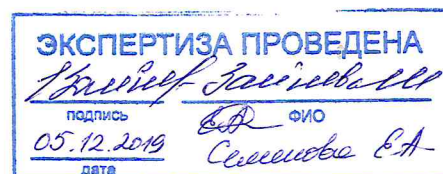 ЭКСПЕРТИЗА ПРОВЕДЕНА
подпись ФИО
05.12.2019 Семенова Е.А
дата